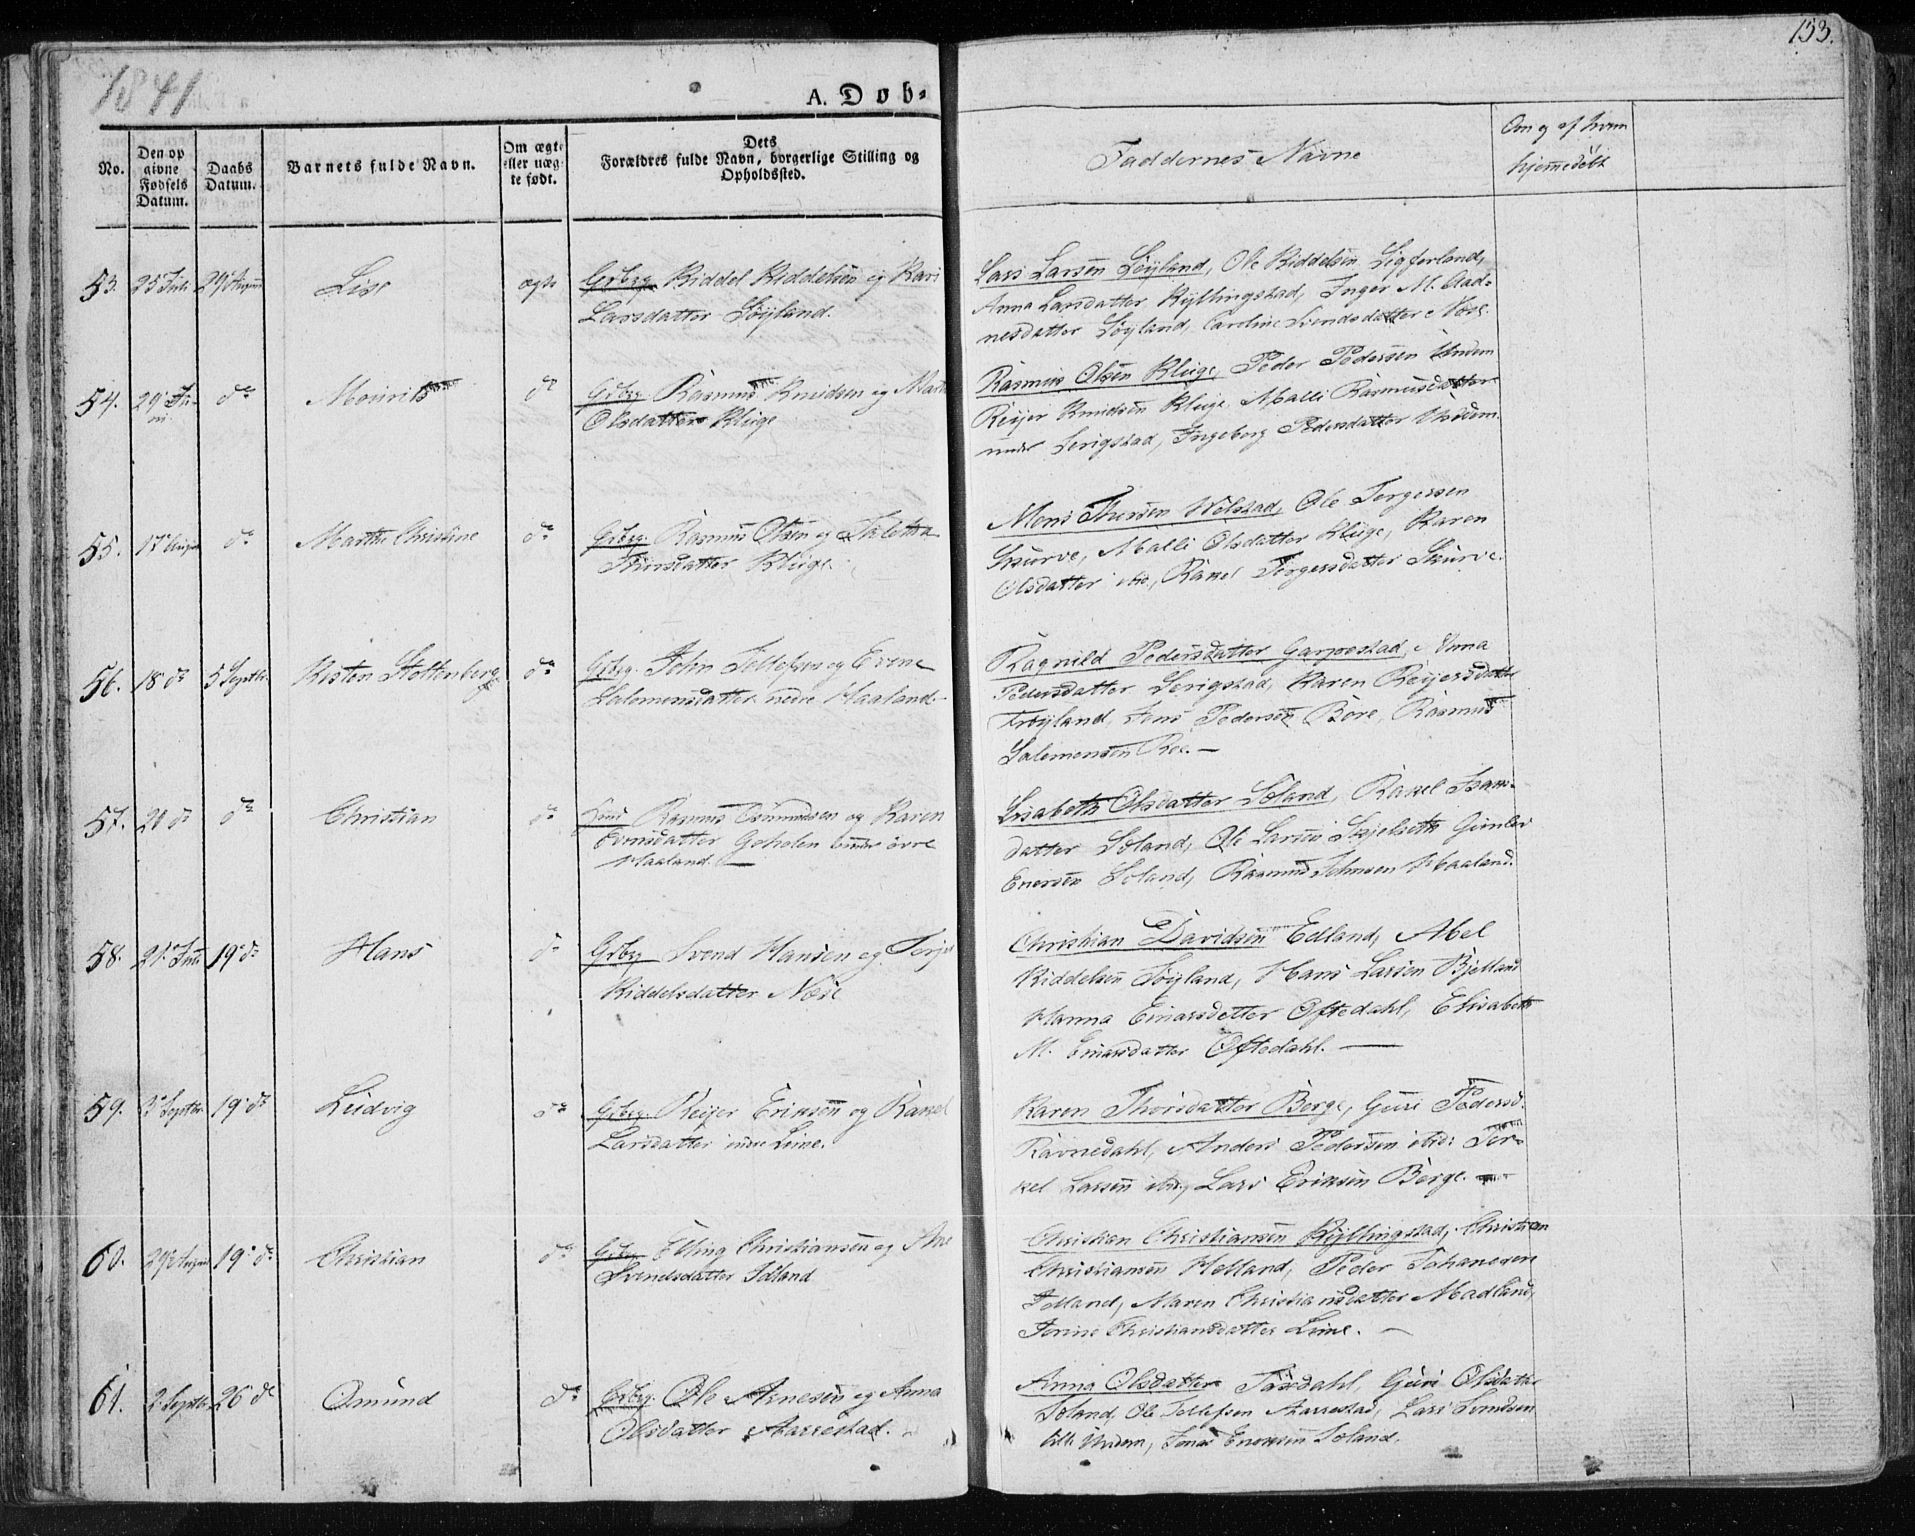 1841
153.
A. Døb-
No.
Den op
givne
Fødsels
Datum.
Daabs
Datum.
Barnets fulde Navn.
Om ægte
eller uæg-
te født.
Dets
Forældres fulde Navn, borgerlige Stilling og
Opholdssted.
Faddernes Navne
Om og af hvem
hjemmedøbt
53. 25 Juli 29 August Lise ægte Gdbrg. Riddel Riddelsen og Kari
Larsdatter Søyland.
Lars Larsen Søyland, Ole Riddelsen
Anna Larsdatter Kyllingstad, Inger M. Aad-
nesdatter Søyland, Caroline Svendsdatter Næse.
54. 29 Ju-
ni. do Mourits do Gdbrg. Rasmus Knudsen og
Olsdatter Kluge
Rasmus Olsen Kluge, Peder Pedersen
Reijer Knudsen Kluge, Malli Rasmusdatter
under Serigstad, Ingeborg Pedersdatter
55. 17 August do Marthe Christine do Gdbrg. Rasmus Olsen og
Thorsdatter Kluge.
Mons Thorsen Welstad, Ole Torgersen
Skurve, Malli Olsdatter Kluge, Karen
Olsdatter ibid, Rakel Torgersdatter Skurve.
56. 18 do 5 Septbr. Kisten Stoltenberg do Gdbrg. John Tollefsen og
Salomonsdatter nedre Haaland.
Ragnild Pedersdatter Garpestad, Anna
Pedersdatter Serigstad, Karen Reijersdatter
Frøyland, Jens Pedersen Bore, Rasmus
Salemonsen Ree. —
57. 20 do do Christian do Rasmus Osmundsen og Karen
Evensdatter under øvre
Haaland. —
Lisabeth Olsdatter Soland, Rakel
datter Soland, Ole Larsen Skjelseth
Soland, Rasmus Johnsen Haaland.
58. 21 Juni 19 do Hans do Gdbrg Svend Hansen og
Riddelsdatter Næse
Christian Davidsen Edland, Abel
Riddelsen Søyland, Hans Larsen Bjelland
Hanna Einarsdatter Oftedahl, Elisabeth
M. Einarsdatter Oftedahl. —
59. 3 Septbr. 19 do Ludvig do Gdbrg. Reijer Eriksen og Rakel
Larsdatter Lime.
Karen Thorsdatter Berge, Guri Pedersd.
Ravnedahl, Anders Pedersen ibid: Tor-
kel Larsen ibid, Lars Eriksen Berge. —
60. 29 August 19 do Christian do Gdbrg. Elling Christiansen og Ane
Svendsdatter
Christian Christiansen Kyllingstad, Christian
Christiansen Helland, Peder Johanesen
Maren Christiansdatter Madland,
Christiansdatter Lime. —
61. 2 Septbr. 26 do Osmund do Gdbrg. Ole Arnesen og Anna
Olsdatter Aarrestad.
Anna Olsdatter Guri Olsdatter
Soland, Ole Tollefsen Aarrestad, Lars Svendsen
Jonas Soland.